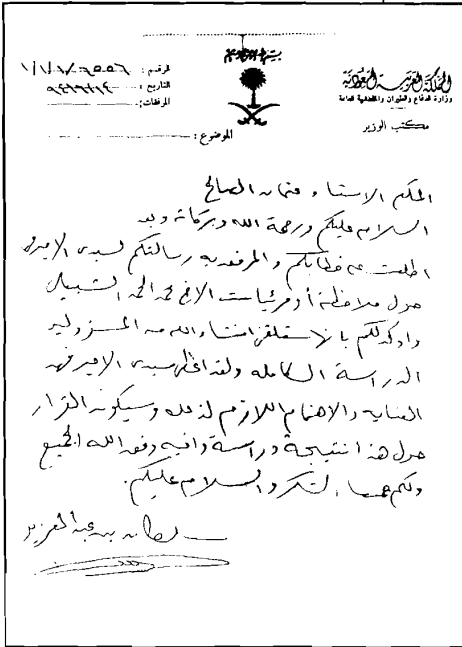 بسم الله الرحمن الرحيم
المملكة العربية السعودية
وزارة الدفاع والطيران والمفتشية العامة
مكتب الوزير
الرقم :
التاريخ :
المرفقات :
الموضوع :
المكرم الاستاذ عثمان الصالح
السلام عليكم ورحمة الله وبركاته وبعد
اطلعت على خطابكم والمرفق به رسالتكم لسيدي الامير فهد
حول ملاحظة أو مرئيات الاخ محمد الحمد الشبيلي
واؤكد لكم بانها ستلقى انشاء الله من المسئولين
الدراسة الكامله ولقد اعطى سيدي الامير فهد
العنايه والاهتمام اللازم لذلك وسيكون القرار
حول هذا نتيجة دراسة وافيه وفق الله الجميع
ولكم جميعا الشكر والسلام عليكم.
سلطان بن عبدالعزيز